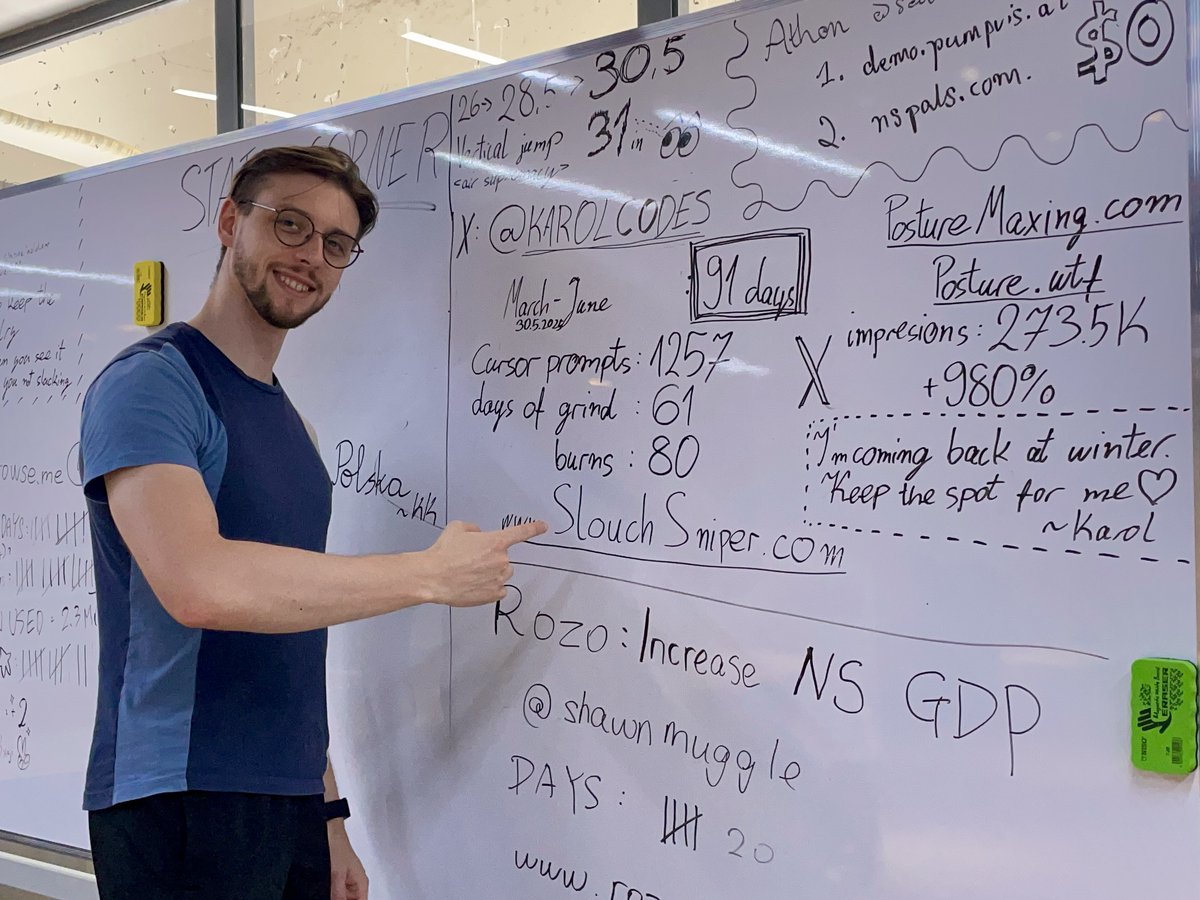 26→28,5→30,5
Vertical jump 31 in
<air supremacy>
X: @KAROLCODES
91 days
March-June
30.5.2026
Cursor prompts: 1257
days of grind: 61
burns: 80
www. SlouchSniper.com
Athon
1. demo.pumpvis.ai
2. nspals.com.
$0
PostureMaxing.com
Posture.wtf
X impresions: 273.5K
+980%
I'm coming back at winter.
Keep the spot for me ♡
~Karol
Polska
~KK
Rozo: Increase NS GDP
@shawnmuggle
DAYS: 20
www.
keep the
you see it
you not slacking
rowse.me
DAYS:
USED = 2.3M
+2
ERASER